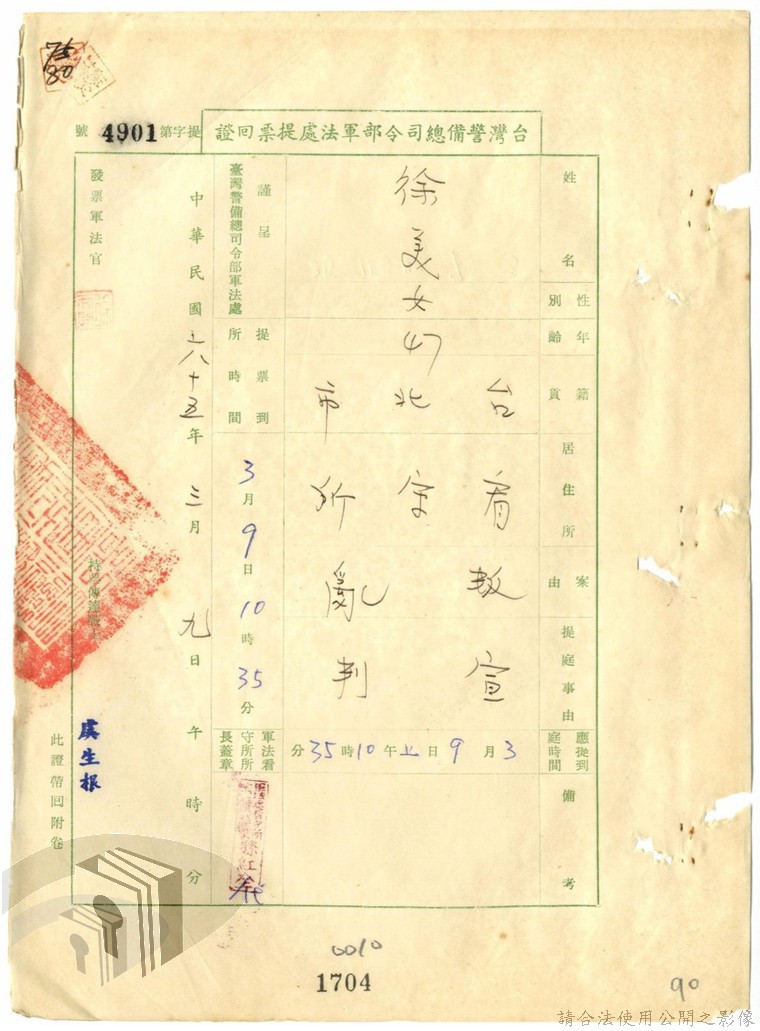 75
80
台灣警備總司令部軍法處提票回證
提字第4901號
姓名
徐美
性別
女
年齡
47
籍貫
台北市
居住所
看守所
案由
叛亂
提庭事由
宣判
應提到庭時間
3月9日上午10時35分
備考
謹呈
臺灣警備總司令部軍法處
提票到所時間
3月9日10時35分
軍法看守所所長蓋章
中華民國六十五年三月九日午時分
發票軍法官
虞生根
此證帶回附卷
0010
1704
90
請合法使用公開之影像